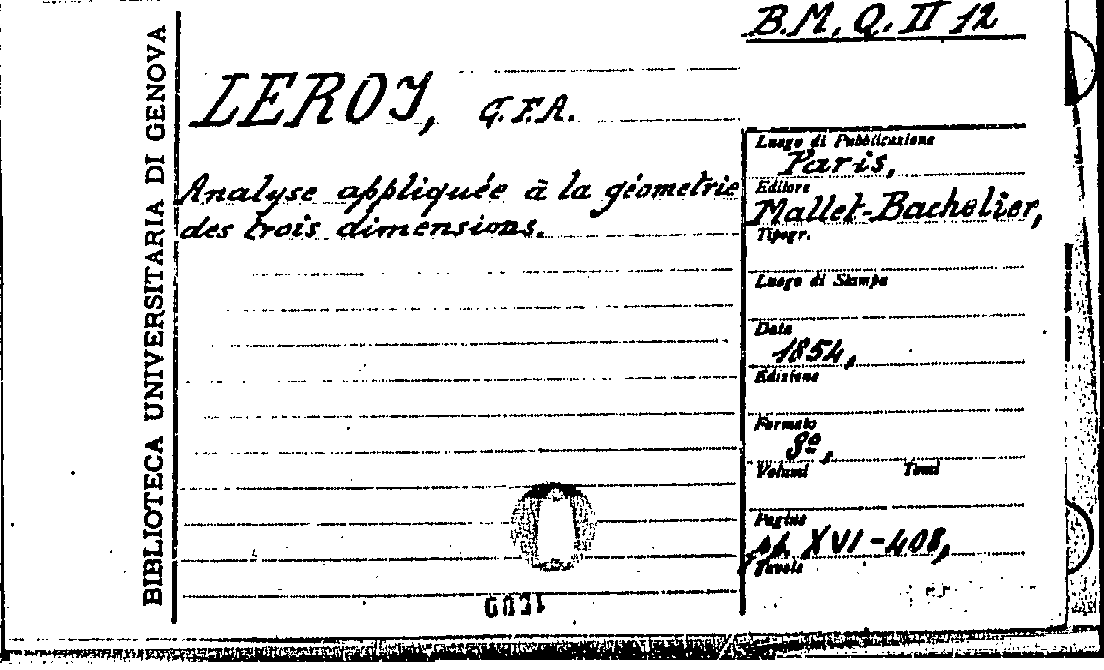 B.M. Q. II 12
BIBLIOTECA UNIVERSITARIA DI GENOVA
LEROY, C.F.A.
Analyse appliquée à la géometrie
des trois dimensions.
Luogo di Pubblicazione
Paris,
Editore
Mallet-Bachelier,
Tipogr.
Luogo di Stampa
Data
1854,
Edizione
Formato
8º,
Volumi Tomi
Pagine
pp. XVI-408,
Tavole